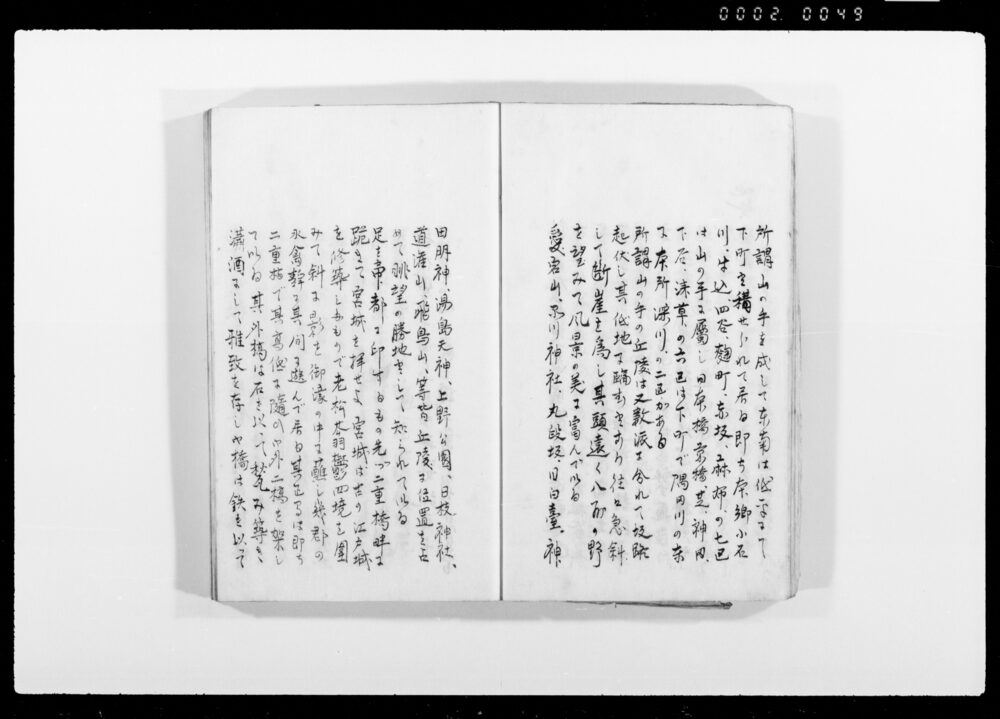 0002. 0049
所謂山の手を成して東南は低平にして
下町を構せられて居る即ち本郷小石
川、牛込四谷麹町、赤坂、麻布、の七区
は山の手に属し日本橋京橋、芝、神田、
下谷、浅草の六区は下町で隅田川の東
に本所深川、の二区がある
所謂山の手の丘陵は又数派に分れて坂路
起伏し其低地に臨む所あり往々急斜
して断崖を為し其頭遠く八百の野
を望みて風景の美に富んで以る
愛宕山、品川神社、九段坂、目白台、神
田明神、湯島天神、上野公園、日枝神社、
道灌山、飛鳥山、等皆丘陵に位置を占
めて眺望の勝地として知られて以る
足を帝都に印するもの先づ二重橋畔に
跪きて宮城を拝せよ宮城は古の江戸城
を修築しるもので老松蓊鬱四境を囲
みて斜に影を御濠の中に蘸し幾群の
水禽静に其間に遊んで居る其正門は即ち
二重橋で其高低に随ひ内外二橋を架し
て以る其外橋は石を以って畳み築き
瀟洒にして雅致を存し内橋は鉄を以って